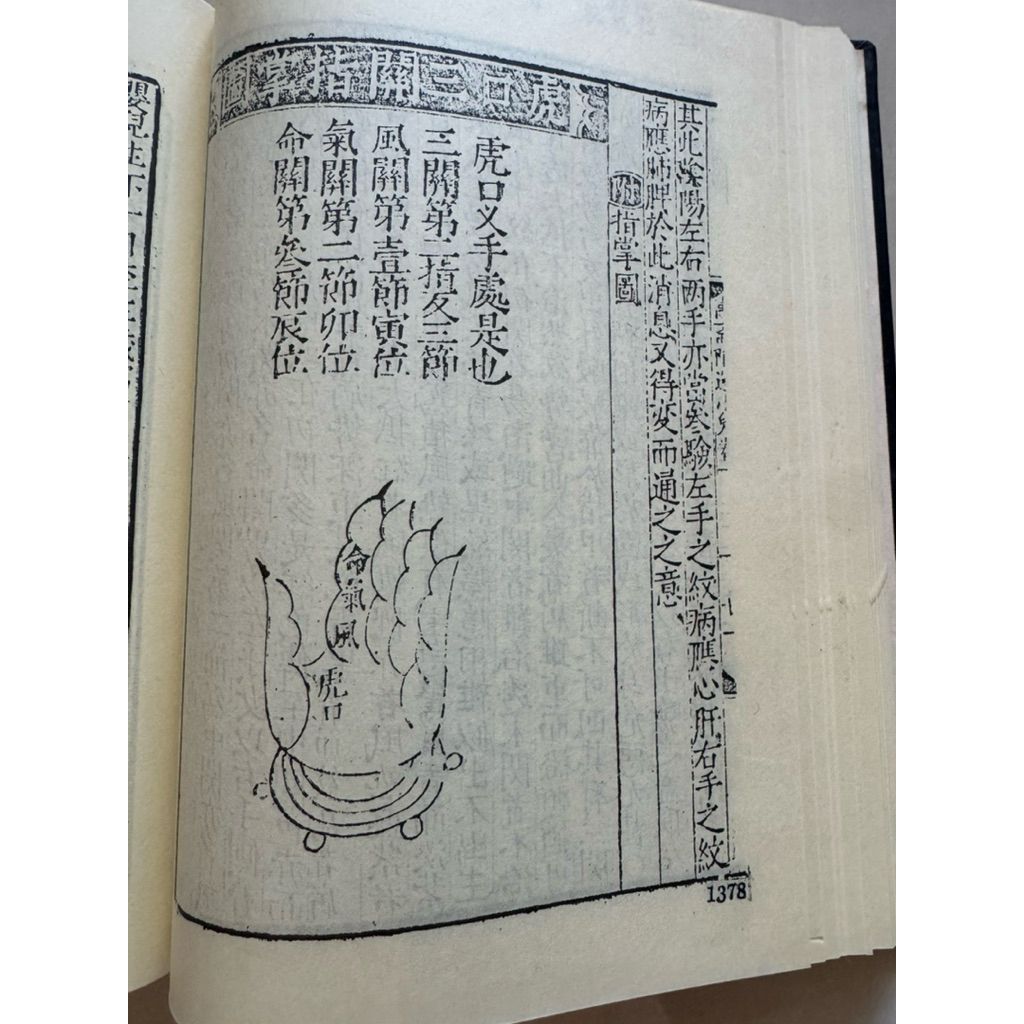 其此陰陽左右两手亦當叅驗左手之紋病應心肝右手之紋
病應肺脾於此消息又得変而通之之意
附指掌圖
虎口三關指掌圖
虎口叉手處是也
三關第二指三節
風關第壹節寅位
氣關第二節卯位
命關第叁節辰位
命氣風
虎口
1378